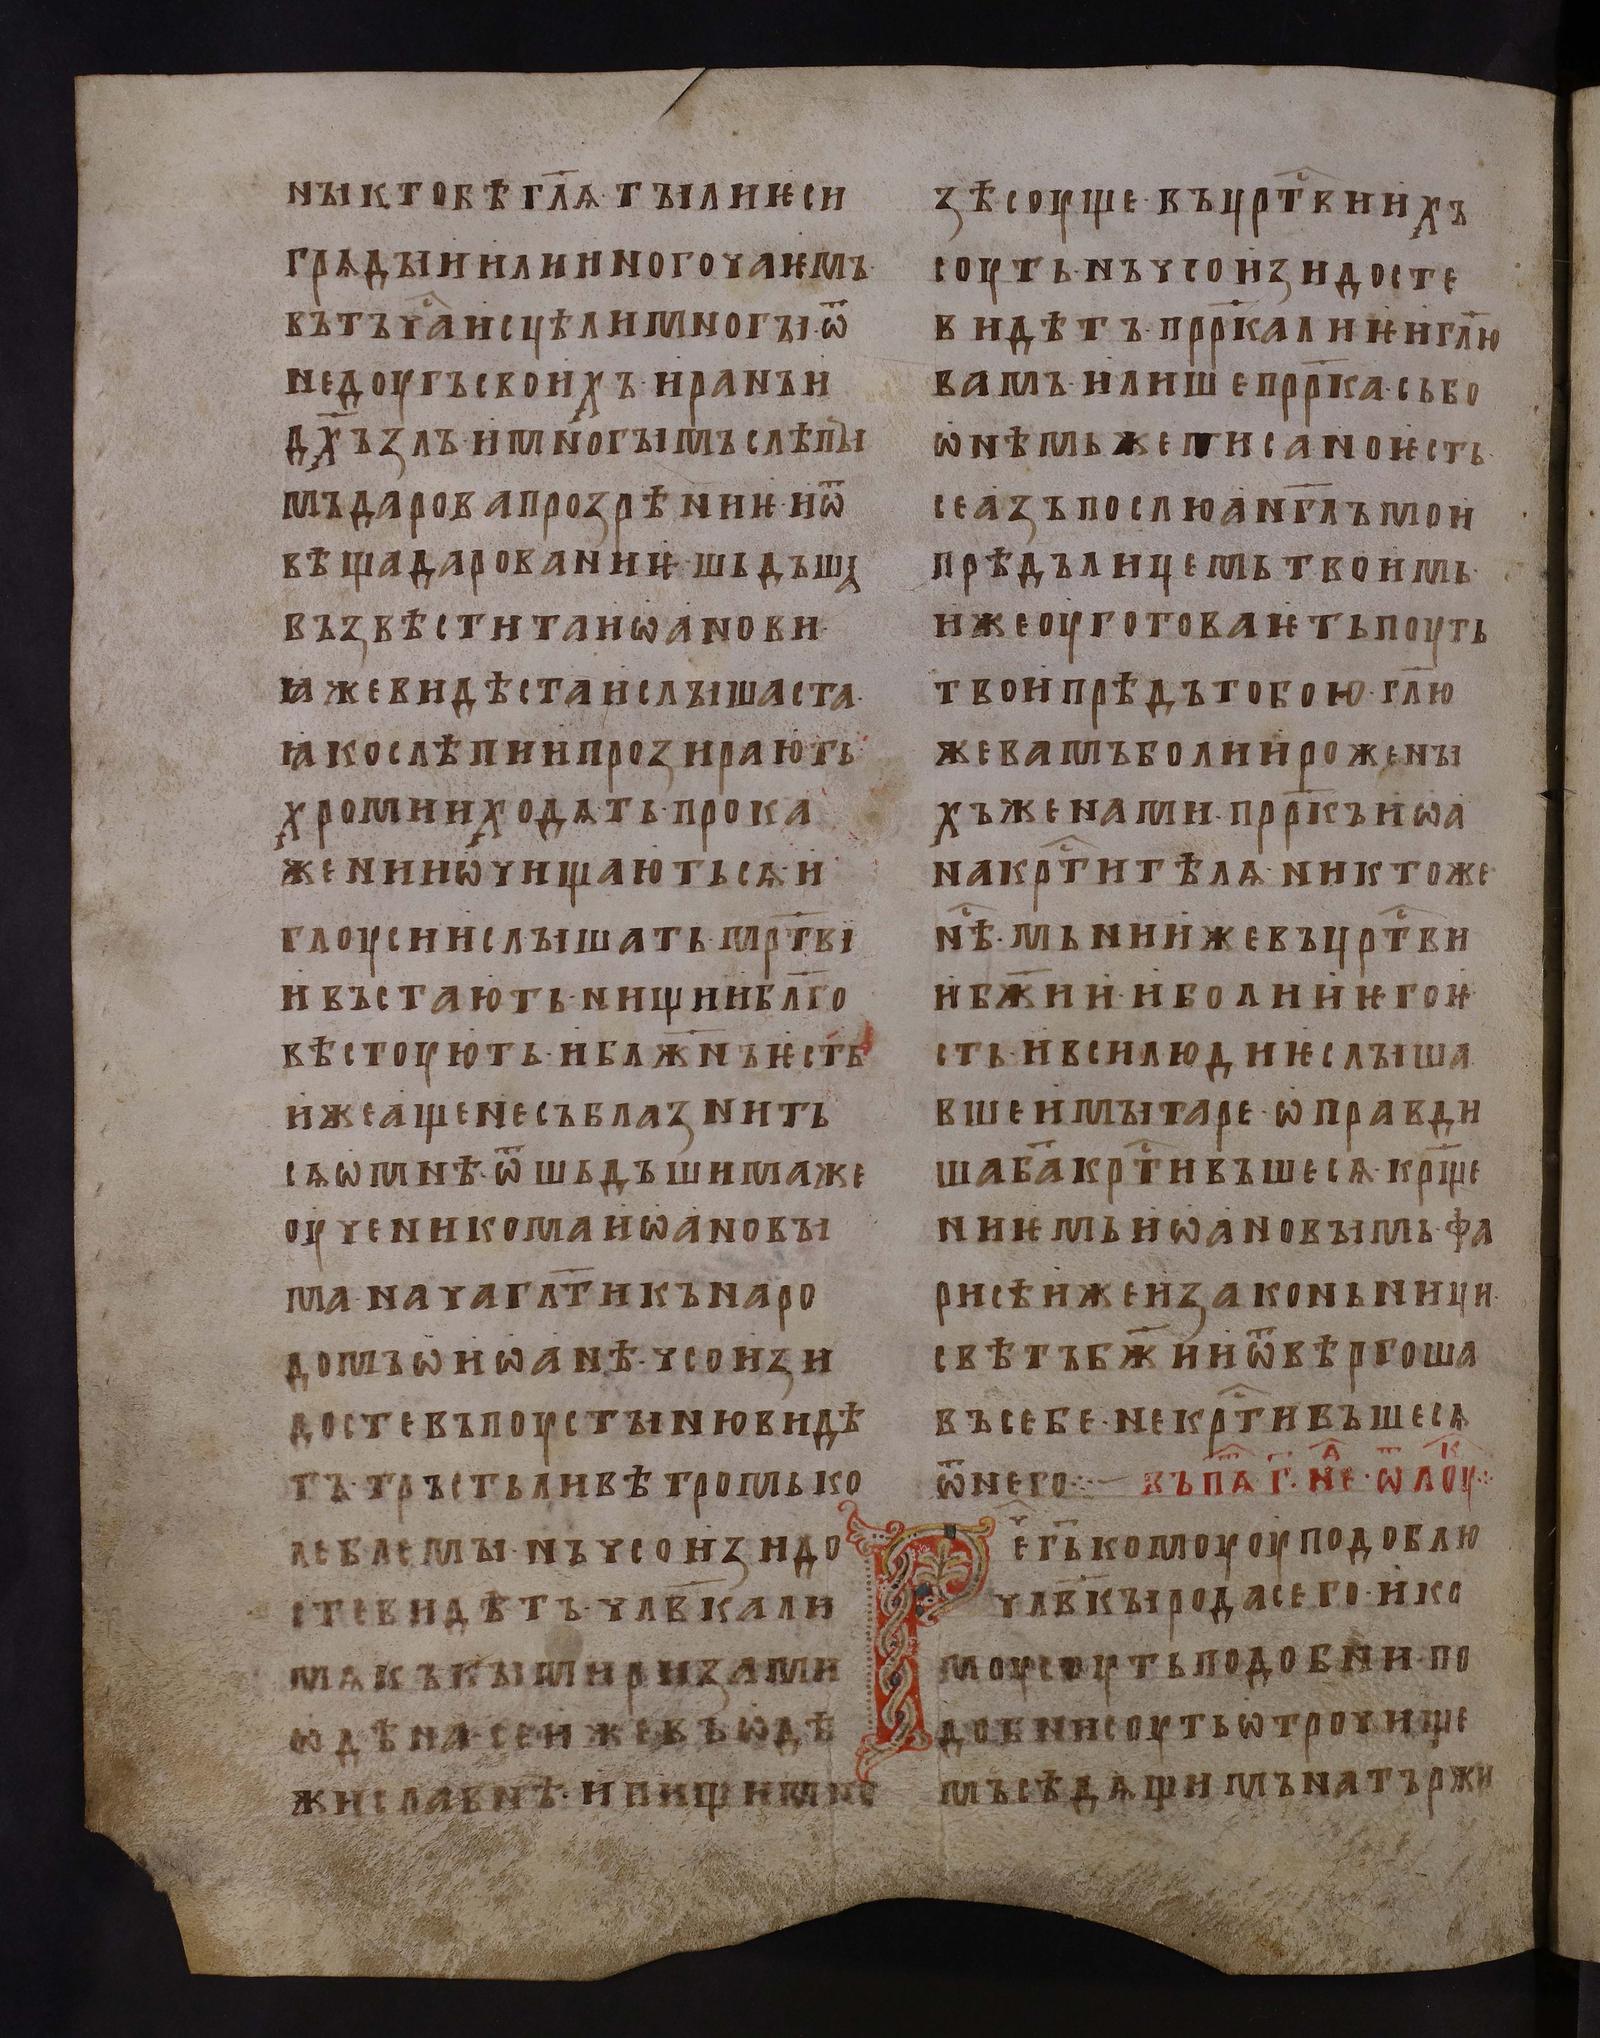 нꙑктобѣгл҃ѧ·тꙑлиѥси
грѧдꙑииилииногоучаѥмъ·
вътъча҃исцѣлимногꙑ·ѿ
недоугъсвоихъ·ираньи
дх҃ъзлъ·имногꙑмъслѣпꙑ
мъдаровапрозрѣниѥ·иѿ
вѣщадарованиѥ·шьдъшꙗ
възвѣститаиѡанови·
ꙗжевидѣстаислꙑшаста·
ꙗкослѣпиипрозирають·
хромииходѧть·прока
жениѡчищаютьсѧ·и
глоусиислꙑшать·мрт҃ви
ивъстають·нищиибл҃го
вѣстоують·иблаж҃нъѥсть
ижеащенесъблазнить
сѧѡмнѣ·ѿшьдъшимаже
оученикомаиѡановꙑ
ма·начагл҃тикънаро
домъѡиѡанѣ·чсоизи
достевъпоустꙑнювидѣ
тъ·тръстьливѣтромько
леблемꙑ·нъчсоизидо
стевидѣтъ·члв҃кали
мѧкъкꙑмиризами
ѡдѣна·сеижевъѡдѣ
жиславнѣ·ипищимно
зѣсоуще·въцрт҃виихъ
соуть·нъчсоизидосте
видѣтъ·прр҃калиѥигл҃ю
вамъ·илишепрр҃ка·сьбо
ѡнѣмьжеписаноѥсть·
сеазъпослюанг҃лъмои
прѣдълицемьтвоимь·
ижеоуготоваѥтьпоуть
твоипрѣдътобою·гл҃ю
жевамъболиироженꙑ
хъженами·прр҃къиѡа
накрт҃итѣлѧ·никтоже
нѣ҃·мьниижевъцрт҃ви
ибж҃ии·иболииѥгоѥ
сть·ивсилюдиѥслꙑша
вшеимꙑтаре·ѡправди
шаба҃крт҃ивъшесѧ·крщ҃е
ниѥмьиѡановꙑмь·фа
рисѣижеизаконьници·
свѣтъбж҃ииѿвѣргоша
въсебе·некрт҃ивъшесѧ
ѿнего·:— въпѧ҃·г҃·не҃·ѿлоук҃·:
Рег҃ькомоуоуподоблю
члв҃кꙑродасего·ико
моусоутьподобни·по
добнисоутьѡтрочище
мъсѣдѧщимънатържи